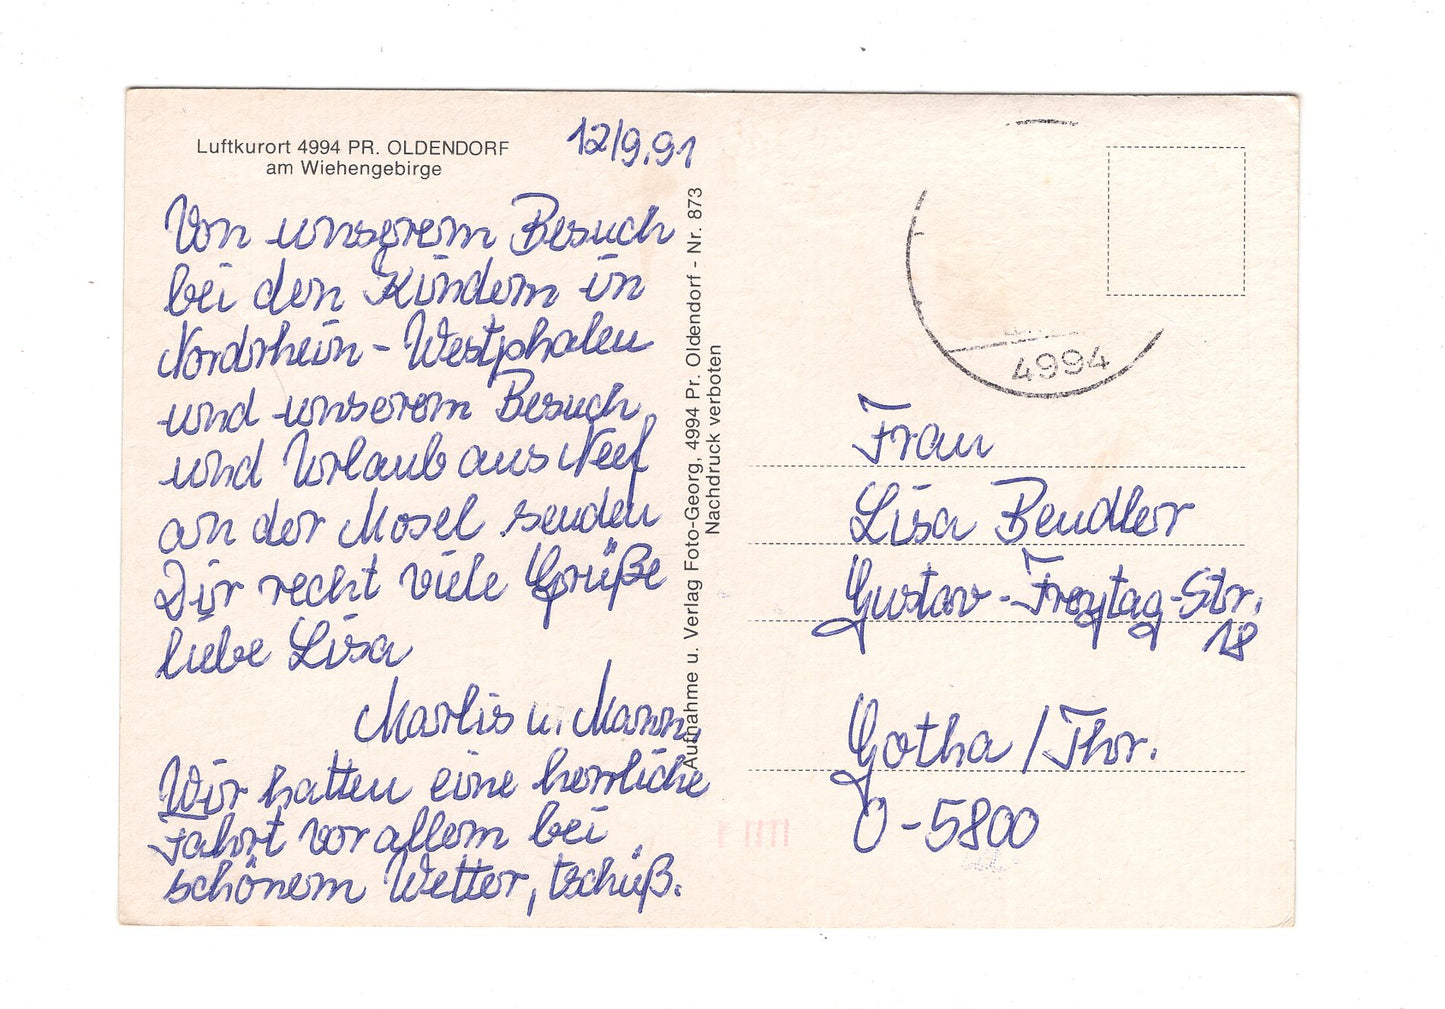 Luftkurort 4994 PR. OLDENDORF
am Wiehengebirge
12/9.91
Von unserem Besuch
bei den Kindern in
Nordrhein-Westphalen
und unserem Besuch
und Urlaub aus Neef
an der Mosel senden
Dir recht viele Grüße
liebe Lisa
Marlis u. Mann.
Wir hatten eine herrliche
Fahrt vor allem bei
schönem Wetter, tschüß.
Aufnahme u. Verlag Foto-Georg, 4994 Pr. Oldendorf - Nr. 873
Nachdruck verboten
4994
Frau
Lisa Bendler
Gustav-Freytag-Str.
18
Gotha / Thür.
O-5800